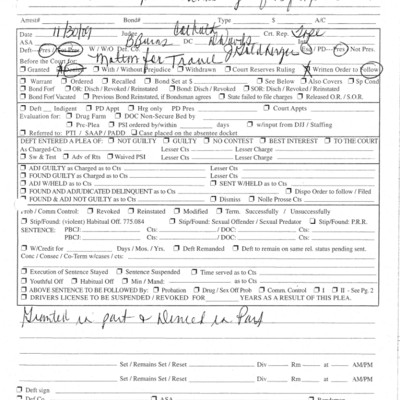 Arrest# Bond# Type: A/C
11/30/09 Judge Crt. Rep. Tape
ASA Burns DC
Deft- Pres / Not Pres. W / W/O Def. Co. / PD- Pres / Not Pres.
Before the Court for: Motion for Travel
Granted With / Without Prejudice Withdrawn Court Reserves Ruling Written Order to follow
Warrant Ordered Recalled Bond Set at See Below Also Covers Sp Cond
Bond Forf OR: Disch / Revoked / Reinstated Bond: Disch / Revoked SOR: Disch / Revoked / Reinstated
Bond Forf Vacated Previous Bond Reinstated, if Bondsman agrees State failed to file charges Released O.R. / S.O.R.
Deft Indigent PD Appt Hrg only PD Pres Court Appts
Evaluation for: Drug Farm DOC Non-Secure Bed by
Pre-Plea PSI ordered by/within days w/input from DJJ / Staffing
Referred to: PTI / SAAP / PADD Case placed on the absentee docket
DEFT ENTERED A PLEA OF: NOT GUILTY GUILTY NO CONTEST BEST INTEREST TO THE COURT
As Charged-Cts Lesser Cts Lesser Cts
Sw & Test Adv of Rts Waived PSI Lesser Cts Lesser Cts
ADJ GUILTY as Charged as to Cts Lesser Cts
FOUND GUILTY as Charged as to Cts Lesser Cts
ADJ W/HELD as to Cts SENT W/HELD as to Cts
FOUND AND ADJUDICATED DELINQUENT as to Cts Dispo Order to follow / Filed
FOUND & ADJ NOT GUILTY as to Cts Dismiss Nolle Prosse Cts
Prob / Comm Control: Revoked Reinstated Modified Term. Successfully / Unsuccessfully
Stip/Found: (violent) Habitual Off. 775.084 Stip/Found: Sexual Offender / Sexual Predator Stip/Found: P.R.R.
SENTENCE: PBCJ: Cts: / DOC: Cts:
PBCJ: Cts: / DOC: Cts:
W/Credit for Days / Mos. / Yrs. Deft Remanded Deft to remain on same rel. status pending sent.
Conc / Consec / Co-Term w/cases / cts:
Execution of Sentence Stayed Sentence Suspended Time served as to Cts
Youthful Off Habitual Off Min / Mand: as to Cts
ABOVE SENTENCE TO BE FOLLOWED BY: Probation Drug / Sex Off Prob Comm. Control I II - See Pg. 2
DRIVERS LICENSE TO BE SUSPENDED / REVOKED FOR YEARS AS A RESULT OF THIS PLEA.
Granted in part & Denied in Part
Set / Remains Set / Reset Div: Rm at AM/PM
Set / Remains Set / Reset Div: Rm at AM/PM
Set / Remains Set / Reset Div: Rm at AM/PM
Deft sign
Def Co ASA Bondsman